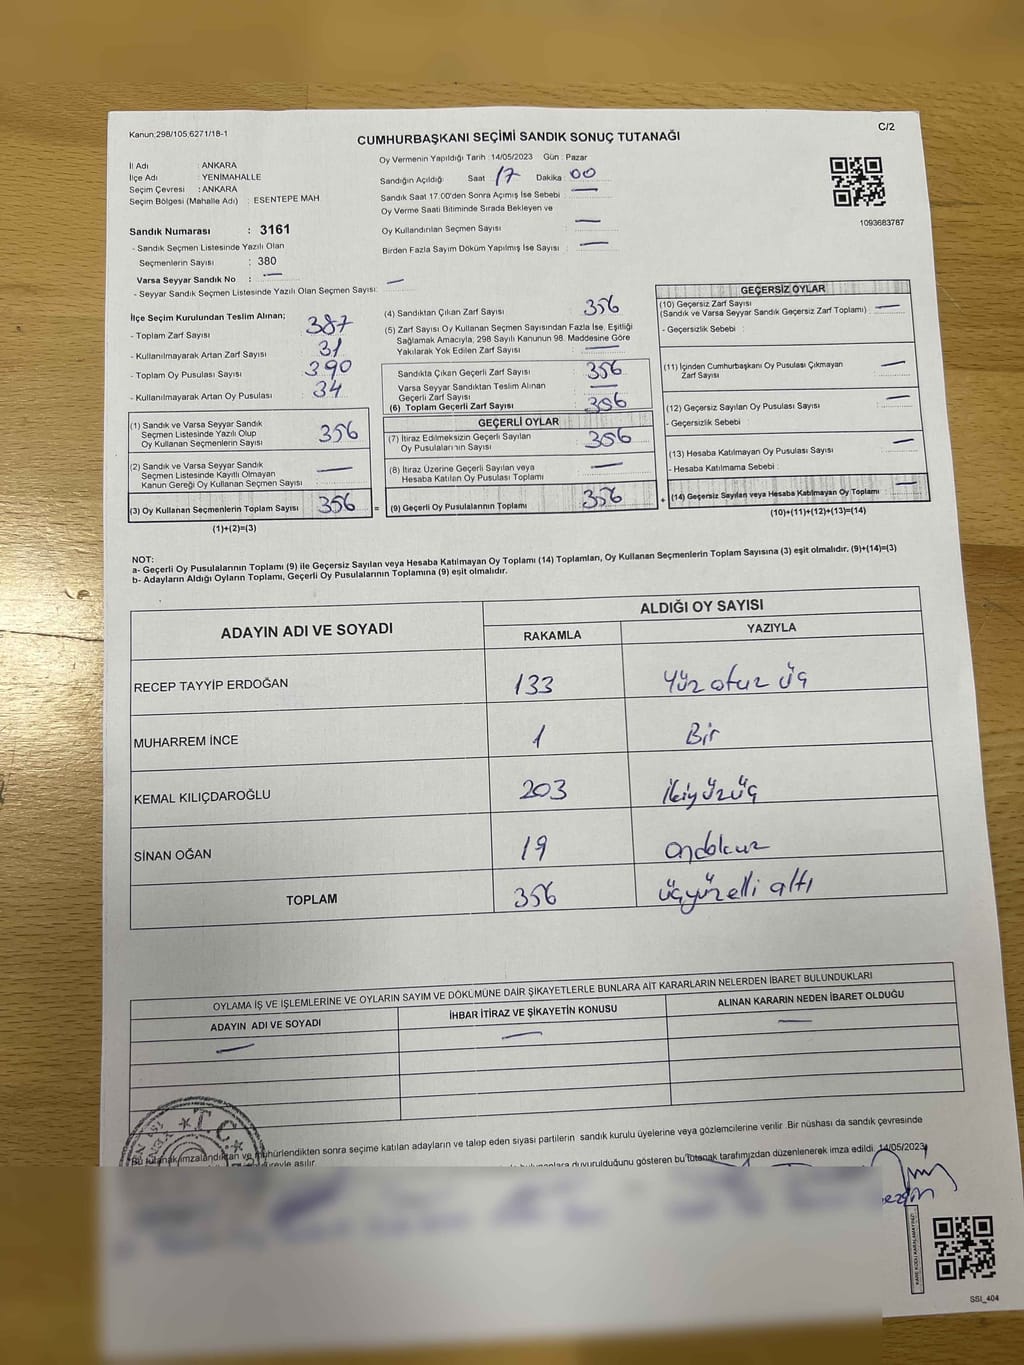 Kanun,298/105,6271/18-1
CUMHURBAŞKANI SEÇİMİ SANDIK SONUÇ TUTANAĞI
C/2
İl Adı : ANKARA
İlçe Adı : YENİMAHALLE
Seçim Çevresi : ANKARA
Seçim Bölgesi (Mahalle Adı) : ESENTEPE MAH
Oy Vermenin Yapıldığı Tarih : 14/05/2023 Gün : Pazar
Sandığın Açıldığı Saat 17 Dakika 00
Sandık Saat 17.00'den Sonra Açımış İse Sebebi : —
Oy Verme Saati Bitiminde Sırada Bekleyen ve
Oy Kullandırılan Seçmen Sayısı : —
Birden Fazla Sayım Döküm Yapılmış İse Sayısı : —
1093683787
Sandık Numarası : 3161
- Sandık Seçmen Listesinde Yazılı Olan
Seçmenlerin Sayısı : 380
Varsa Seyyar Sandık No : —
- Seyyar Sandık Seçmen Listesinde Yazılı Olan Seçmen Sayısı: —
İlçe Seçim Kurulundan Teslim Alınan;
- Toplam Zarf Sayısı : 387
- Kullanılmayarak Artan Zarf Sayısı : 31
- Toplam Oy Pusulası Sayısı : 390
- Kullanılmayarak Artan Oy Pusulası : 34
(1) Sandık ve Varsa Seyyar Sandık
Seçmen Listesinde Yazılı Olup
Oy Kullanan Seçmenlerin Sayısı : 356
(2) Sandık ve Varsa Seyyar Sandık
Seçmen Listesinde Kayıtlı Olmayan
Kanun Gereği Oy Kullanan Seçmen Sayısı : —
(3) Oy Kullanan Seçmenlerin Toplam Sayısı : 356 =
(1)+(2)=(3)
(4) Sandıktan Çıkan Zarf Sayısı : 356
(5) Zarf Sayısı Oy Kullanan Seçmen Sayısından Fazla İse, Eşitliği
Sağlamak Amacıyla, 298 Sayılı Kanunun 98. Maddesine Göre
Yakılarak Yok Edilen Zarf Sayısı : —
Sandıkta Çıkan Geçerli Zarf Sayısı : 356
Varsa Seyyar Sandıktan Teslim Alınan
Geçerli Zarf Sayısı : —
(6) Toplam Geçerli Zarf Sayısı : 356
GEÇERLİ OYLAR
(7) İtiraz Edilmeksizin Geçerli Sayılan
Oy Pusulalarının Sayısı : 356
(8) İtiraz Üzerine Geçerli Sayılan veya
Hesaba Katılan Oy Pusulası Toplamı : —
(9) Geçerli Oy Pusulalarının Toplamı : 356 +
GEÇERSİZ OYLAR
(10) Geçersiz Zarf Sayısı
(Sandık ve Varsa Seyyar Sandık Geçersiz Zarf Toplamı) : —
- Geçersizlik Sebebi :
(11) İçinden Cumhurbaşkanı Oy Pusulası Çıkmayan
Zarf Sayısı : —
(12) Geçersiz Sayılan Oy Pusulası Sayısı : —
- Geçersizlik Sebebi :
(13) Hesaba Katılmayan Oy Pusulası Sayısı : —
- Hesaba Katılmama Sebebi :
(14) Geçersiz Sayılan veya Hesaba Katılmayan Oy Toplamı : —
(10)+(11)+(12)+(13)=(14)
NOT:
a- Geçerli Oy Pusulalarının Toplamı (9) ile Geçersiz Sayılan veya Hesaba Katılmayan Oy Toplamı (14) Toplamları, Oy Kullanan Seçmenlerin Toplam Sayısına (3) eşit olmalıdır. (9)+(14)=(3)
b- Adayların Aldığı Oyların Toplamı, Geçerli Oy Pusulalarının Toplamına (9) eşit olmalıdır.
ADAYIN ADI VE SOYADI
ALDIĞI OY SAYISI
RAKAMLA YAZIYLA
RECEP TAYYİP ERDOĞAN 133 Yüz otuz üç
MUHARREM İNCE 1 Bir
KEMAL KILIÇDAROĞLU 203 ikiyüzüç
SİNAN OĞAN 19 ondokuz
TOPLAM 356 üçyüzelli altı
OYLAMA İŞ VE İŞLEMLERİNE VE OYLARIN SAYIM VE DÖKÜMÜNE DAİR ŞİKAYETLERLE BUNLARA AİT KARARLARIN NELERDEN İBARET BULUNDUKLARI
ADAYIN ADI VE SOYADI İHBAR İTİRAZ VE ŞİKAYETİN KONUSU ALINAN KARARIN NEDEN İBARET OLDUĞU
— — —
T.C.
Bu tutanak imzalandıktan ve mühürlendikten sonra seçime katılan adayların ve talep eden siyasi partilerin sandık kurulu üyelerine veya gözlemcilerine verilir. Bir nüshası da sandık çevresinde
asılır.
duyurulduğunu gösteren bu tutanak tarafımızdan düzenlenerek imza edildi. 14/05/2023
SSI_404